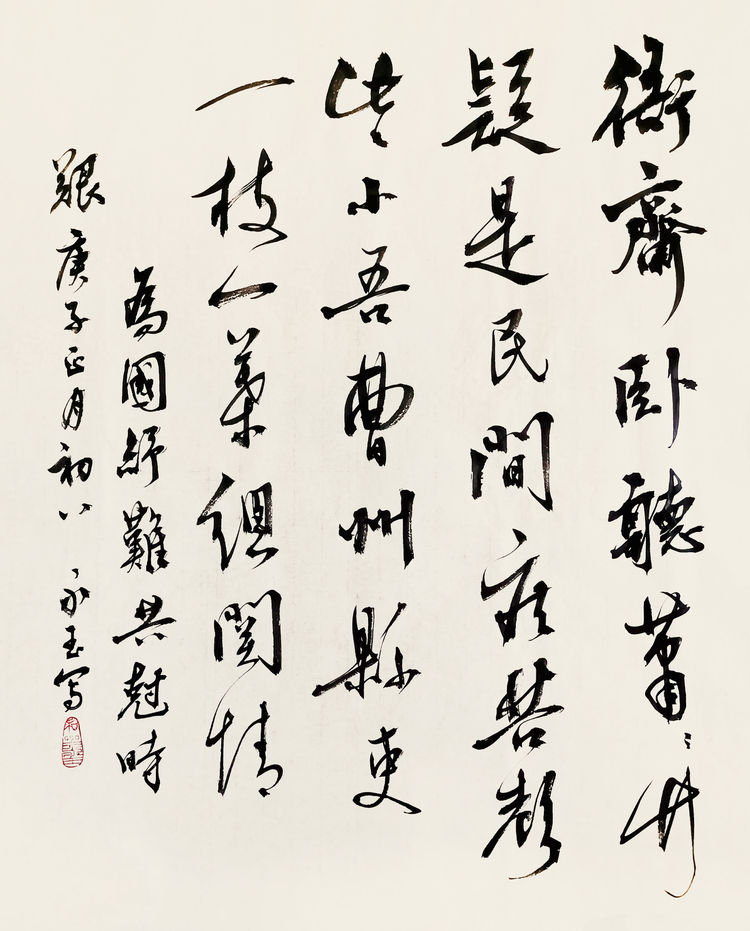 衙齋卧聽蕭々竹
疑是民間疾苦聲
些小吾曹州縣吏
一枝一葉總關情
為國紓難共尅時
艱庚子正月初八 永玉寫